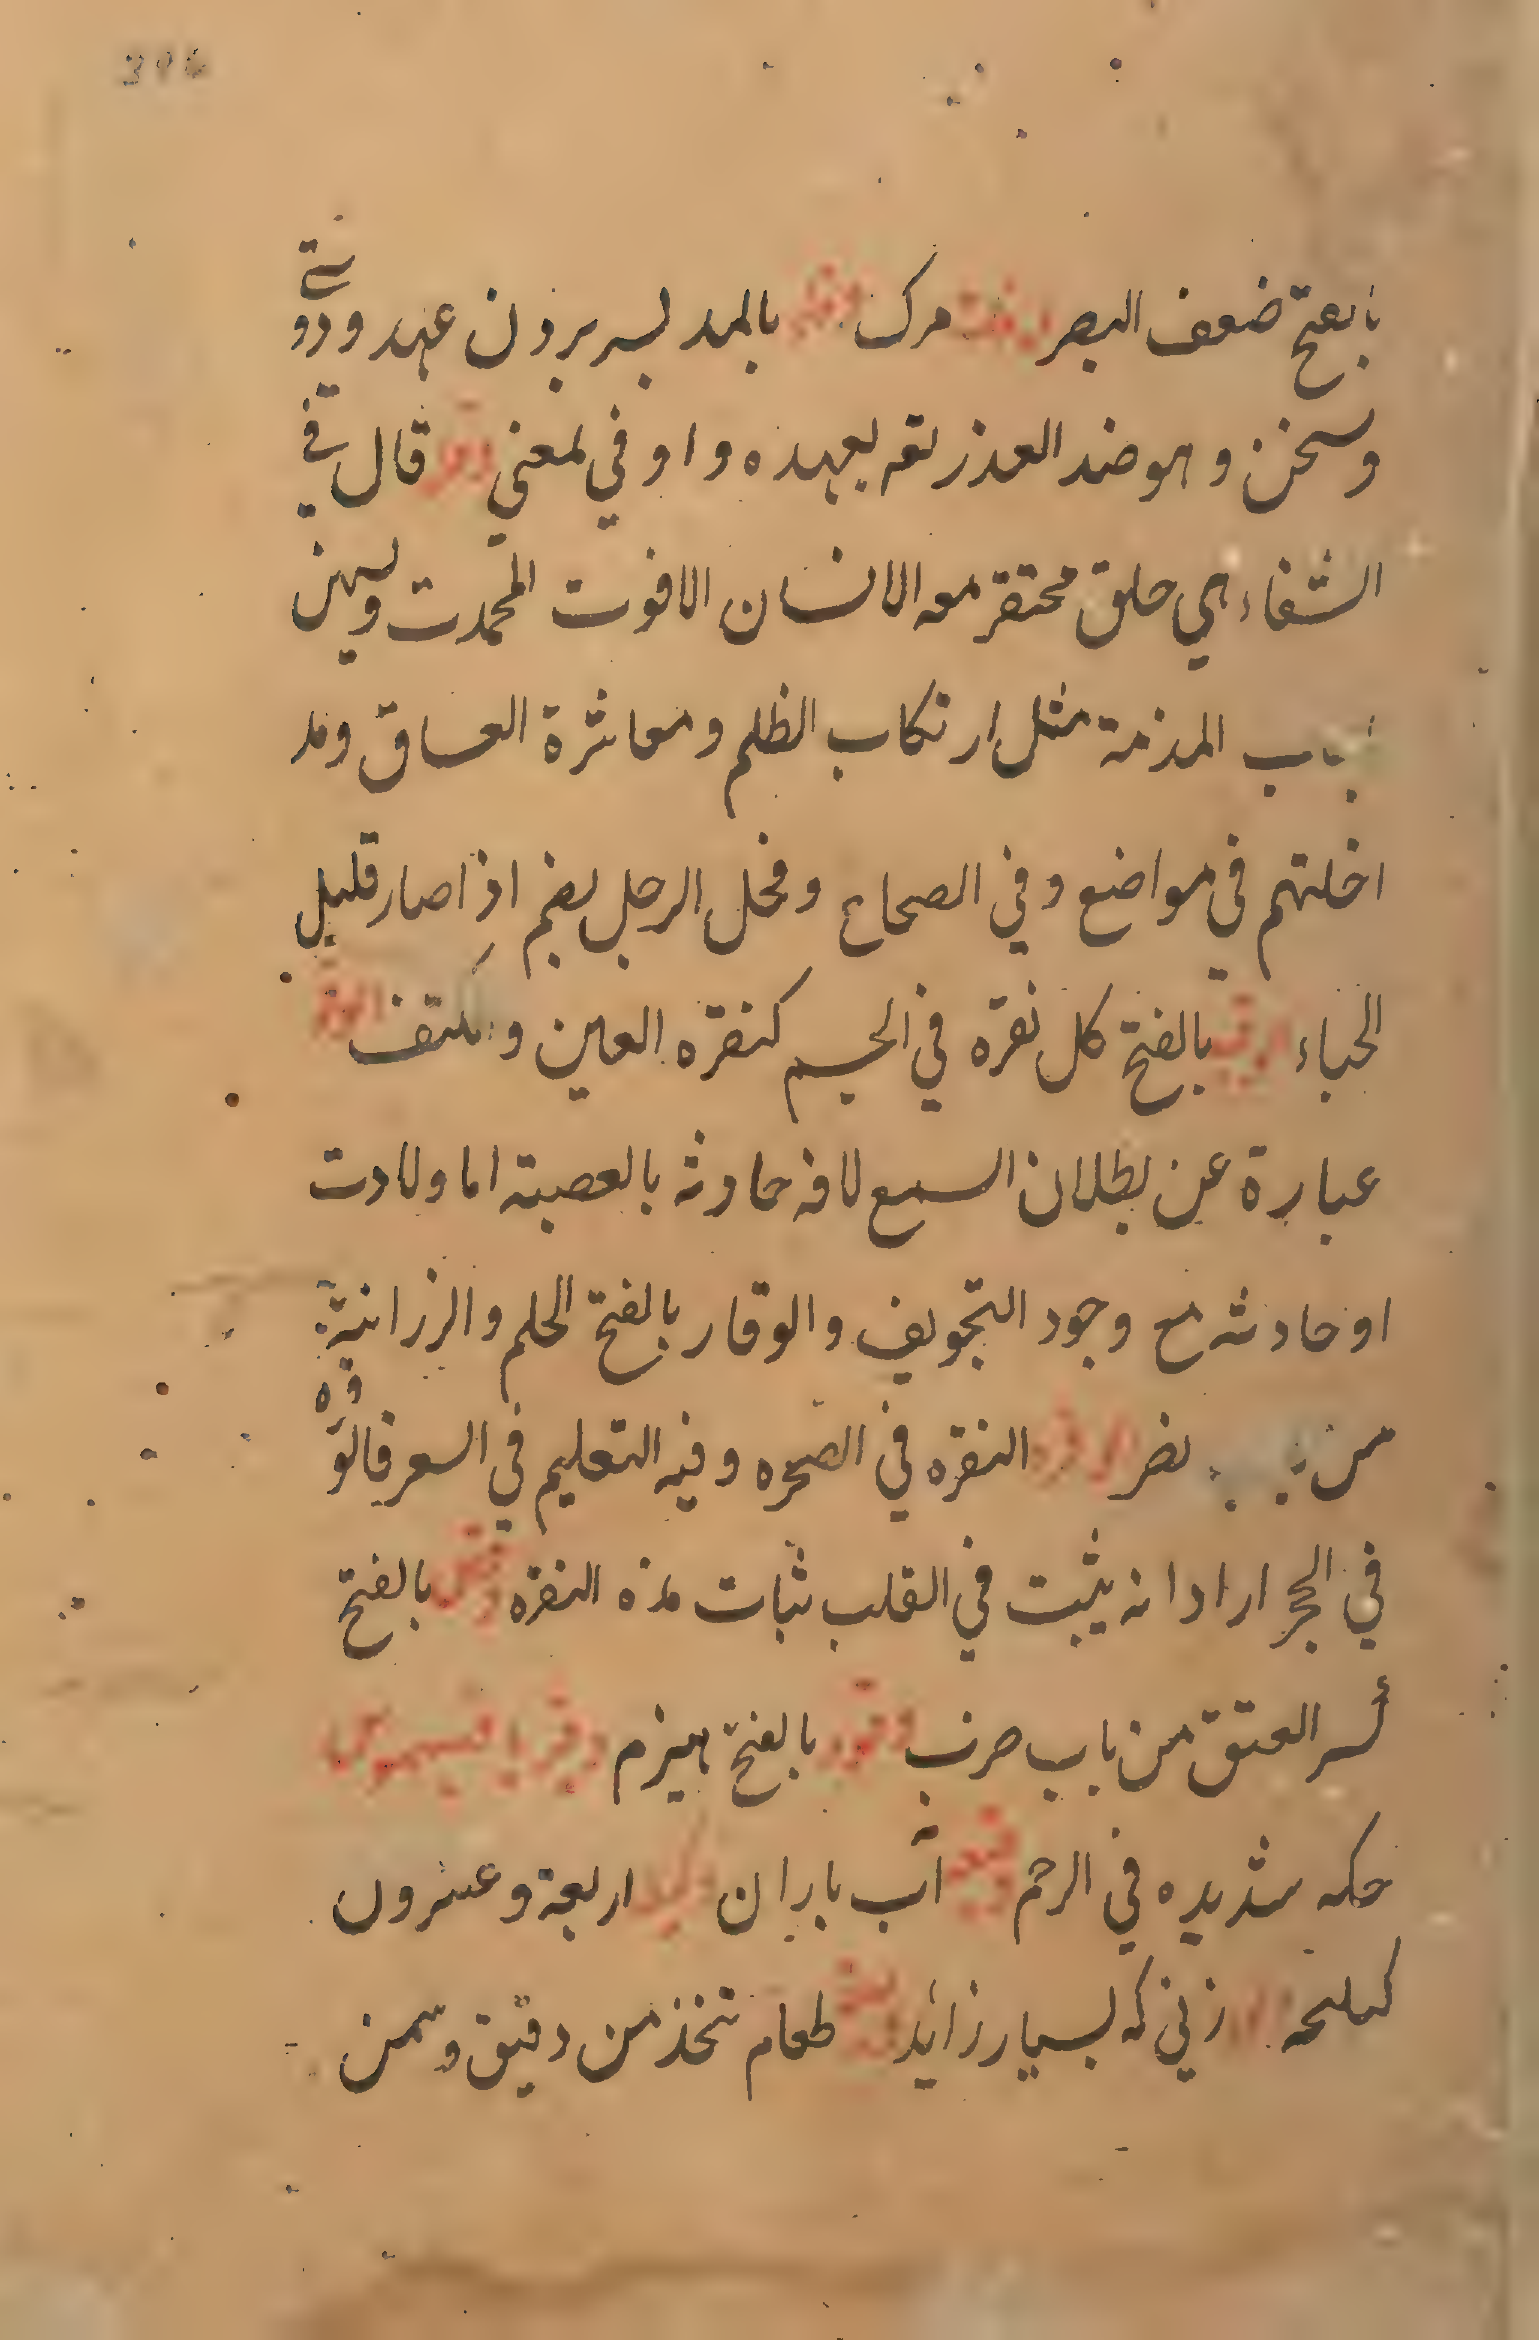 بالفتح ضعف البصر وفات مرك وفا بالمد لسر بردن عهد ودوستي
وسخن وهو ضد الغدر لقه بعهده واوفي لمعني قال في
الشفاء هي خلق محتقر معه الانسان الافوت المحمدت ويهن
باب المذمة مثل ارتكاب الظلم ومعاشرة الفساق وقد
اخلتهم في مواضع وفي الصحاح وقحل الرجل بضم اذا صار قليل
الحياء وقب بالفتح كل نقره في الجسم كنقره العين والكتف الوقر
عبارة عن بطلان السمع لافه حادثه بالعصبة اما ولادت
او حادثه مع وجود التجويف والوقار بالفتح الحلم والرزانة
من نضر الوقره النقره في الصخره وفيه التعليم في الصغر كالوقره
في الحجر اراد انه يثبت في القلب ثبات هذه النقره وقص بالفتح
كسر العتق من باب ضرب وقود بالفتح هيزم
حكه شديده في الرحم وقيعه آب باران اربعة وعشرون
كيلجه زني كه بسيار زايد طعام تتخذ من دقيق وسمن